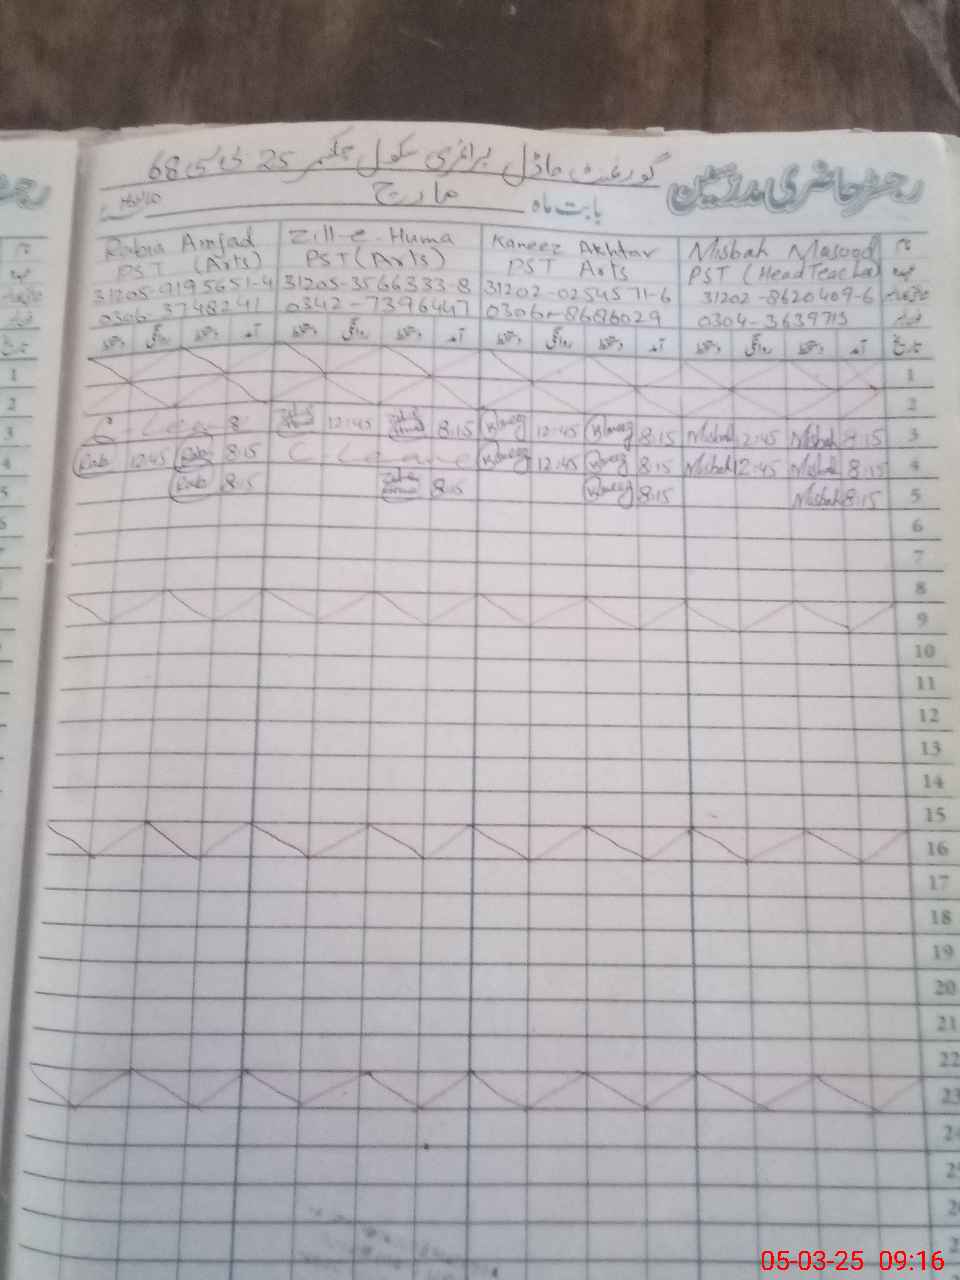 گورنمنٹ ماڈل پرائمری سکول چکنمبر 25 ڈی این بی 68
رجسٹر حاضری مدرسین
بابت ماہ مارچ
Rabia Amjad Zill-e-Huma Kaneez Akhtar Misbah Masood نام
PST (Arts) PST (Arts) PST Arts PST (Head Teacher) عہدہ
31205-9195651-4 31205-3566333-8 31202-0254571-6 31202-8620409-6
0306 3748241 0342-7396447 0306-8686029 0304-3639715
دستخط روانگی دستخط آمد دستخط روانگی دستخط آمد دستخط روانگی دستخط آمد دستخط روانگی دستخط آمد تاریخ
1
2
C-Leave 12:45 8:15 Kaneez 12:45 Kaneez 8:15 Misbah 12:45 Misbah 8:15 3
Rabi 12:45 Rabi 8:15 C Leave Kaneez 12:45 Kaneez 8:15 Misbah 12:45 Misbah 8:15 4
Rabi 8:15 8:15 Kaneez 8:15 Misbah 8:15 5
6
7
8
9
10
11
12
13
14
15
16
17
18
19
20
21
22
23
24
25
05-03-25 09:16